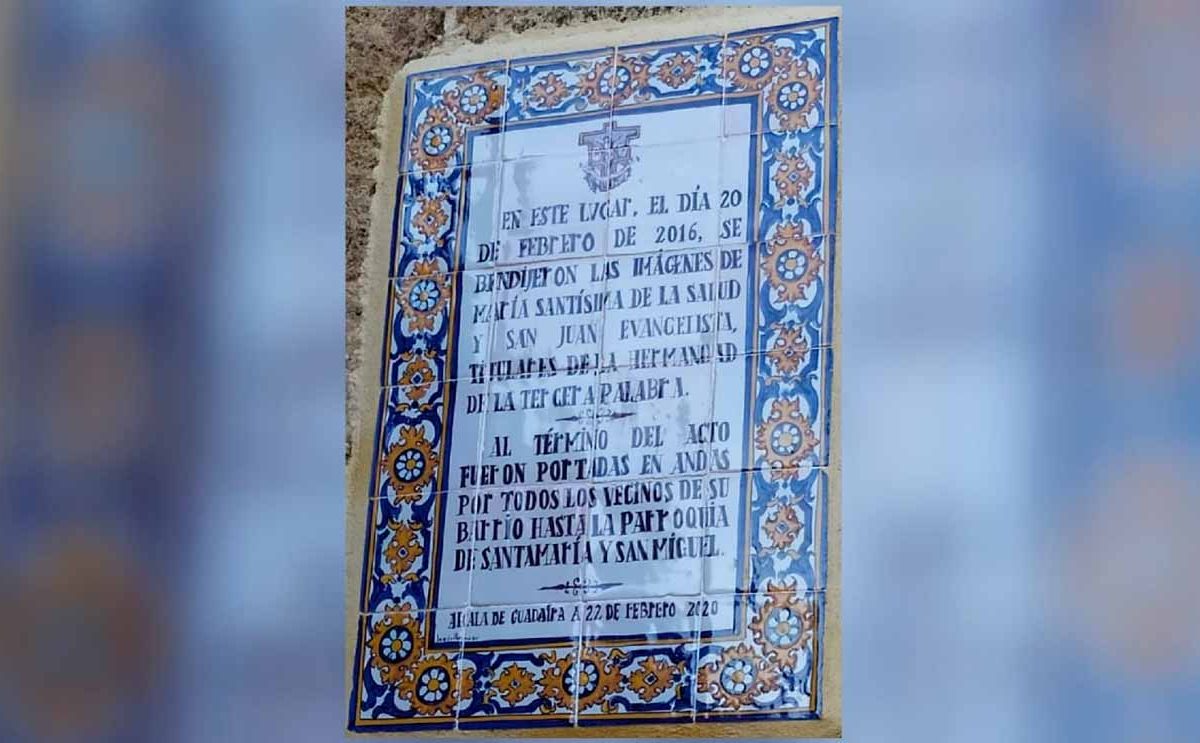 EN ESTE LUGAR, EL DÍA 20
DE FEBRERO DE 2016, SE
BENDIJERON LAS IMÁGENES DE
MARÍA SANTÍSIMA DE LA SALUD
Y SAN JUAN EVANGELISTA,
TITULARES DE LA HERMANDAD
DE LA TERCERA PALABRA.
AL TÉRMINO DEL ACTO
FUERON PORTADAS EN ANDAS
POR TODOS LOS VECINOS DE SU
BARRIO HASTA LA PARROQUIA
DE SANTA MARÍA Y SAN MIGUEL.
ALCALA DE GUADAIRA A 22 DE FEBRERO 2020